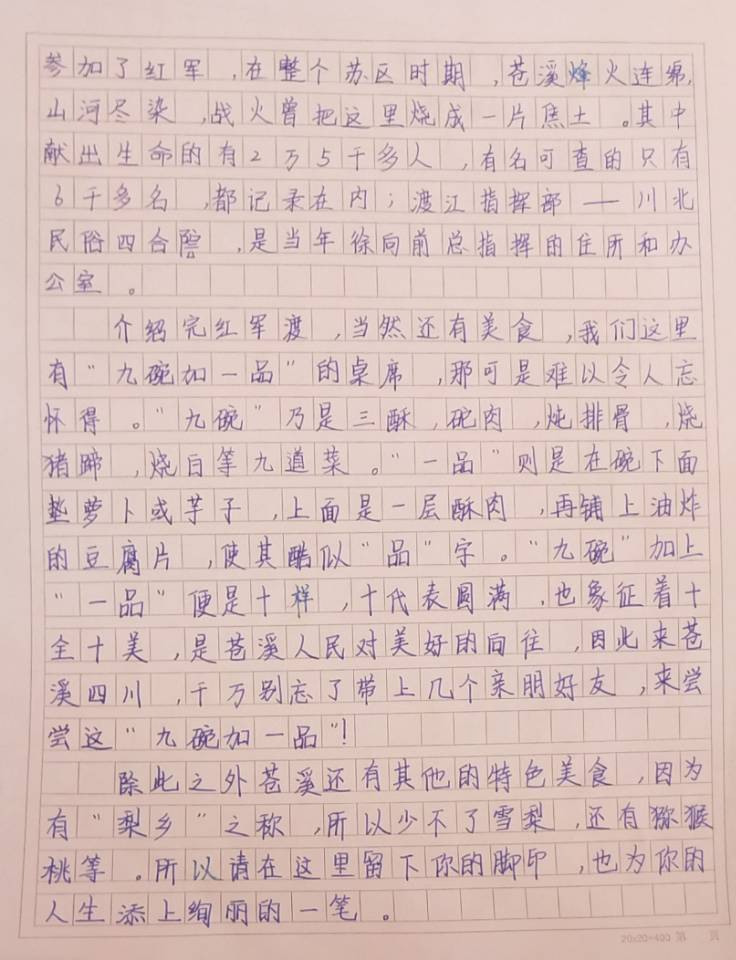 参加了红军,在整个苏区时期,苍溪烽火连绵,
山河尽染,战火曾把这里烧成一片焦土。其中
献出生命的有2万5千多人,有名可查的只有
6千多名,都记录在内;渡江指挥部——川北
民俗四合院,是当年徐向前总指挥的住所和办
公室。
介绍完红军渡,当然还有美食,我们这里
有"九碗加一品"的桌席,那可是难以令人忘
怀得。"九碗"乃是三酥,砣肉,炖排骨,烧
猪蹄,烧白等九道菜。"一品"则是在碗下面
垫萝卜或芋子,上面是一层酥肉,再铺上油炸
的豆腐片,使其酷似"品"字。"九碗"加上
"一品"便是十样,十代表圆满,也象征着十
全十美,是苍溪人民对美好的向往,因此来苍
溪四川,千万别忘了带上几个亲朋好友,来尝
尝这"九碗加一品"!
除此之外苍溪还有其他的特色美食,因为
有"梨乡"之称,所以少不了雪梨,还有猕猴
桃等。所以请在这里留下你的脚印,也为你的
人生添上绚丽的一笔。
20x20=400 第 页